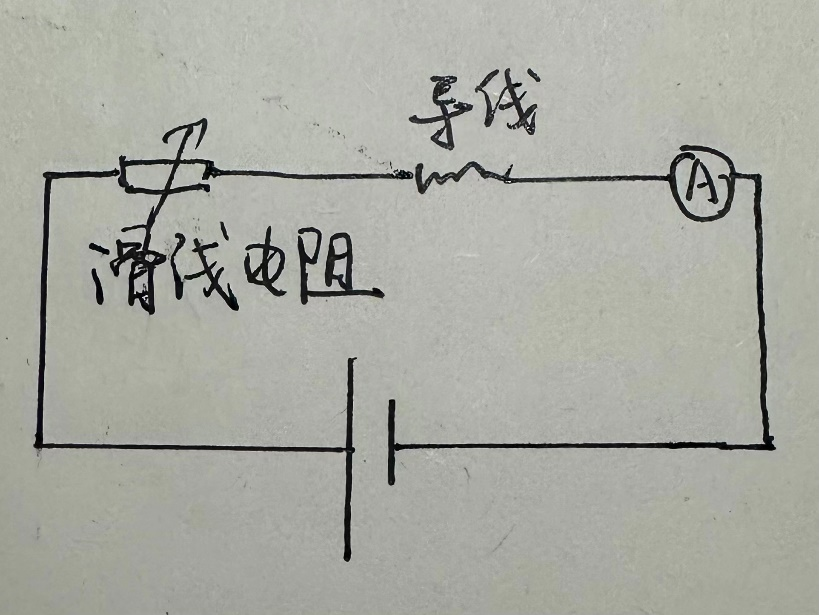 导线
A
滑线电阻